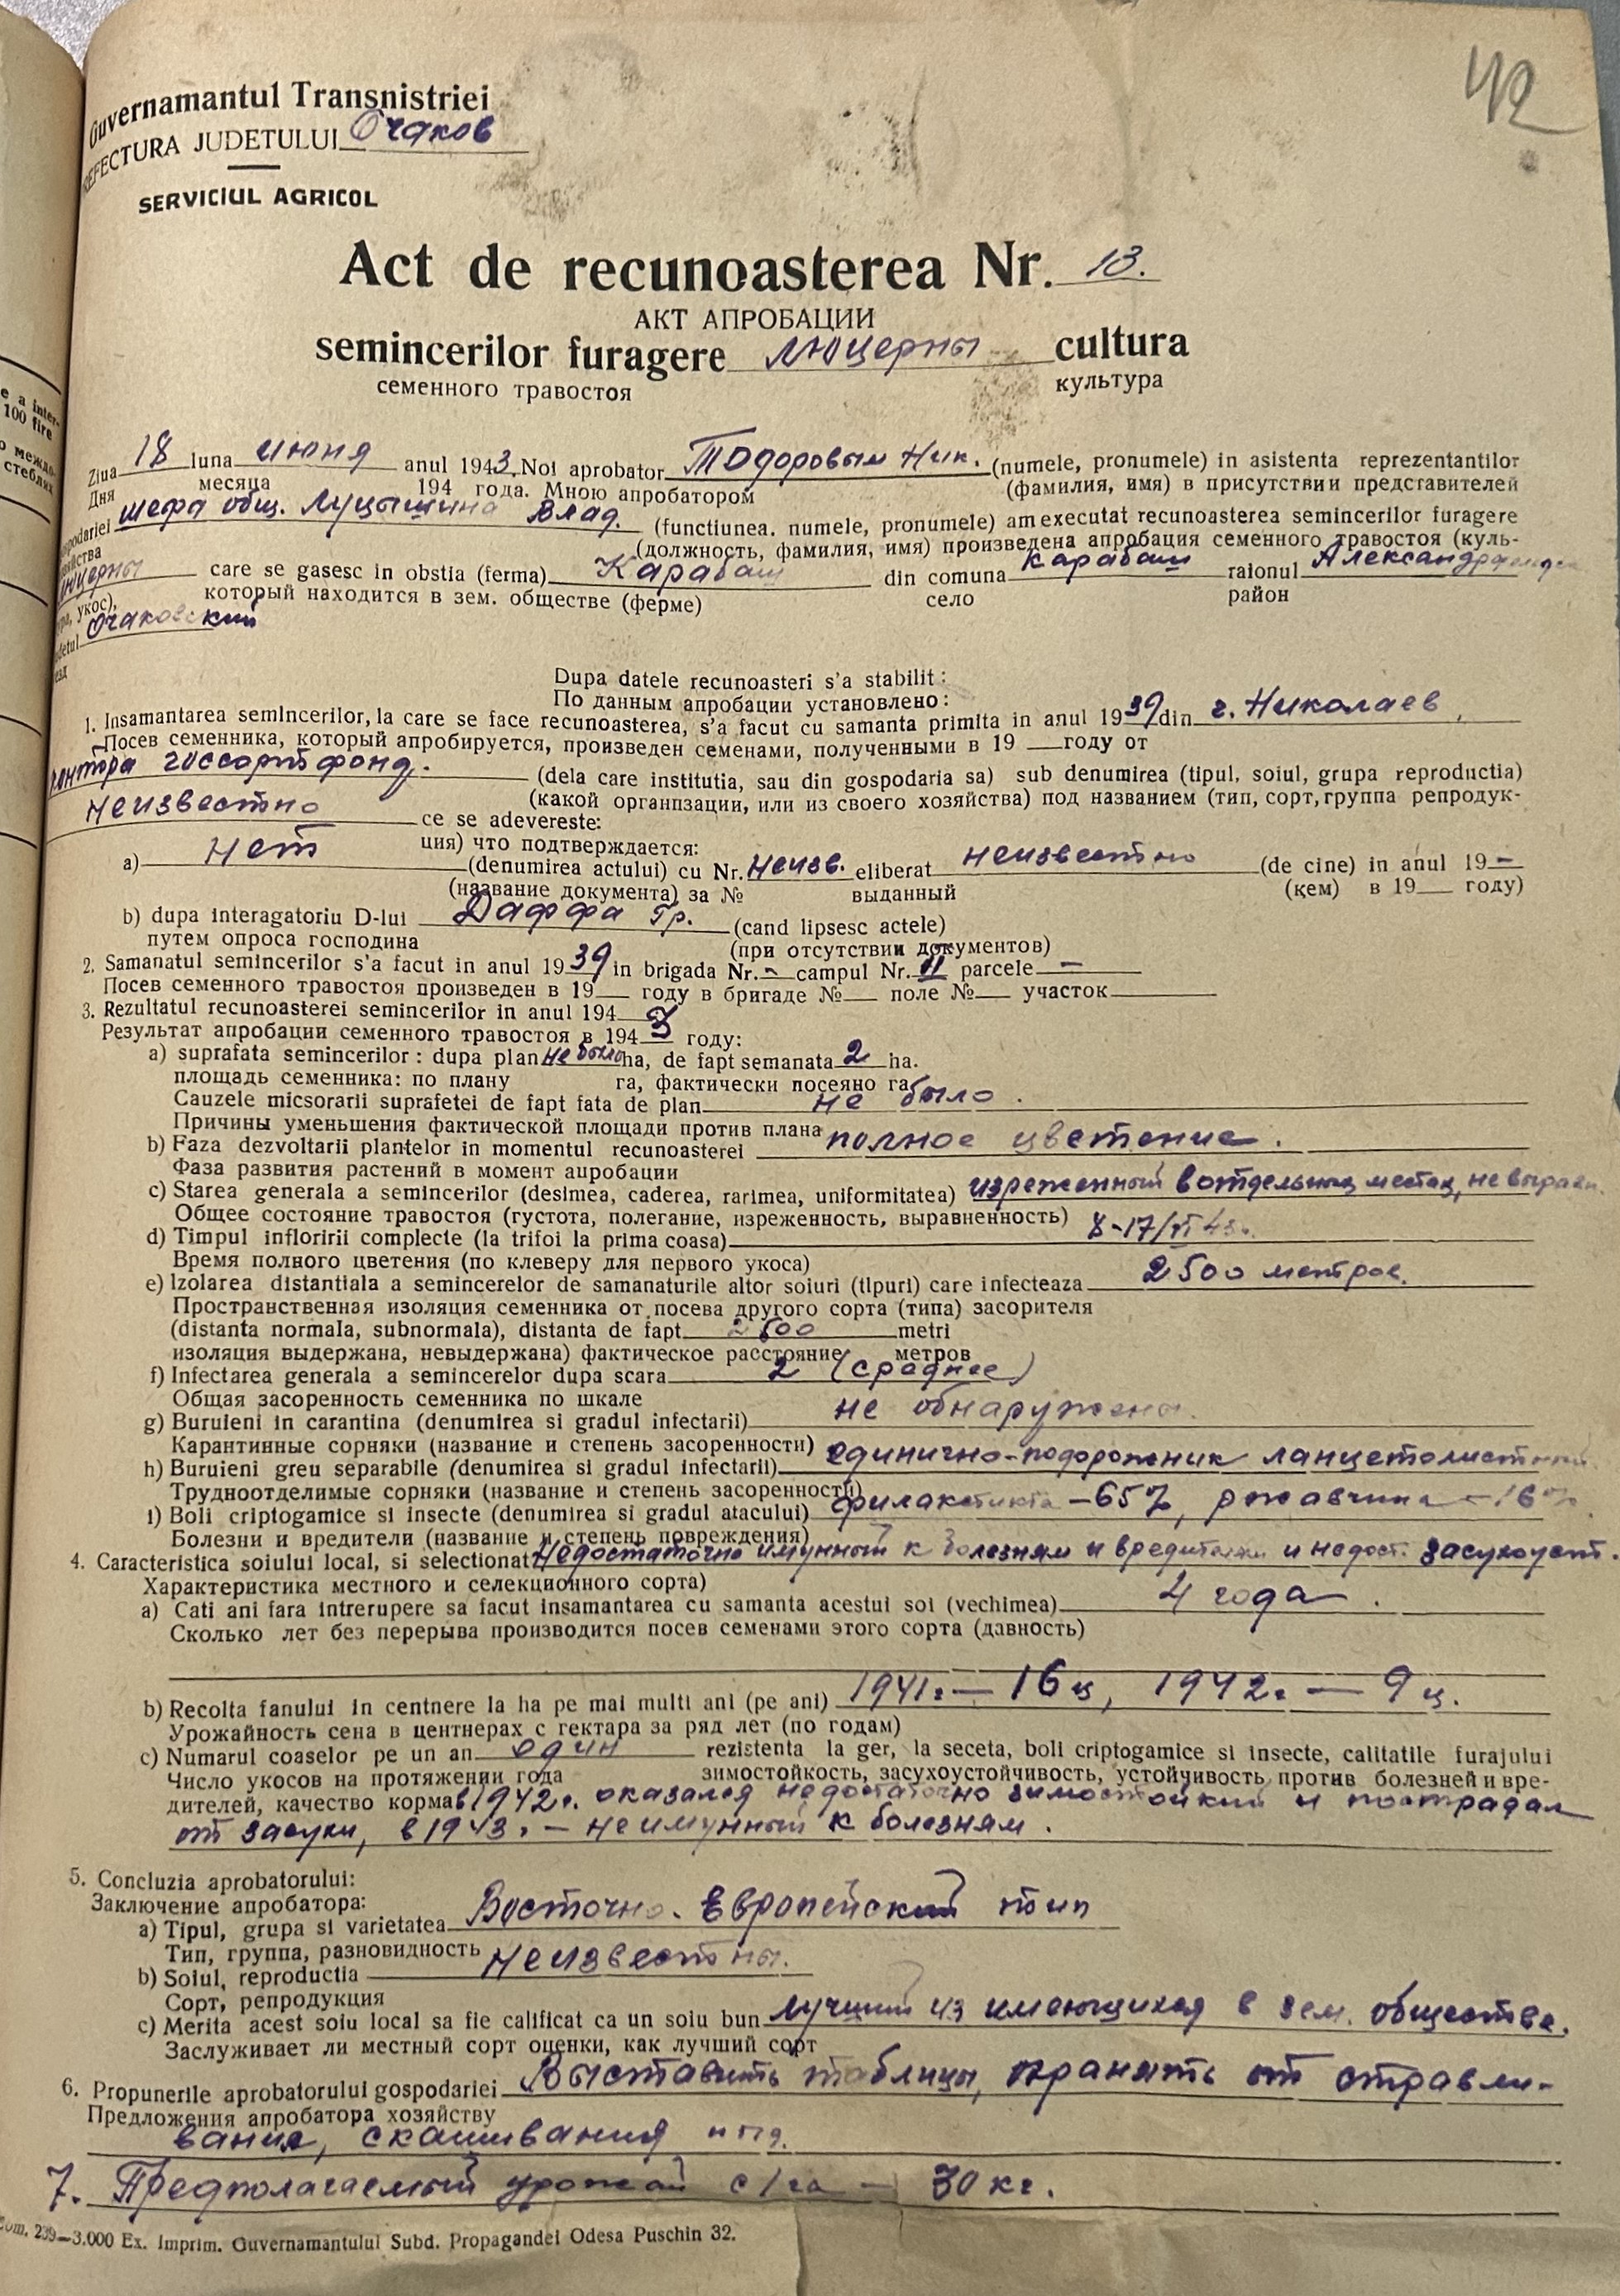 42
Guvernamantul Transnistriei
REFECTURA JUDETULUI Очаков
SERVICIUL AGRICOL
Act de recunoasterea Nr. 13.
АКТ АПРОБАЦИИ
semincerilor furagere люцерны cultura
семенного травостоя культура
e a inter-
100 fire
о между
стеблях
Ziua 18 luna июня anul 1943. Noi aprobator Тодоровым Ник. (numele, pronumele) in asistenta reprezentantilor
Дня месяца 194 года. Мною апробатором (фамилия, имя) в присутствии представителей
spodariei шефа общ. Луцышина Влад. (functiunea. numele, pronumele) am executat recunoasterea semincerilor furagere
яйства (должность, фамилия, имя) произведена апробация семенного травостоя (куль-
люцерны care se gasesc in obstia (ferma) Карабаш din comuna Карабаш raionul
ра, укос), который находится в зем. обществе (ферме) село район
detul Очаковский
езд
Dupa datele recunoasteri s'a stabilit:
По данным апробации установлено:
1. Insamantarea semincerilor, la care se face recunoasterea, s'a facut cu samanta primita in anul 1939 din г. Николаев,
Посев семенника, который апробируется, произведен семенами, полученными в 19 году от
контора госсортфонд. (dela care institutia, sau din gospodaria sa) sub denumirea (tipul, soiul, grupa reproductia)
неизвестно (какой организации, или из своего хозяйства) под названием (тип, сорт, группа репродук-
ce se adevereste:
ция) что подтверждается:
a) нет (denumirea actului) cu Nr. неизв. eliberat неизвестно (de cine) in anul 19 –
(название документа) за № выданный (кем) в 19 году)
b) dupa interagatoriu D-lui Даффа Гр. (cand lipsesc actele)
путем опроса господина (при отсутствии документов)
2. Samanatul semincerilor s'a facut in anul 1939 in brigada Nr. – campul Nr. II parcele –
Посев семенного травостоя произведен в 19 году в бригаде № поле № участок
3. Rezultatul recunoasterei semincerilor in anul 194 3
Результат апробации семенного травостоя в 194 3 году:
a) suprafata semincerilor: dupa plan не было ha, de fapt semanata 2 ha.
площадь семенника: по плану га, фактически посеяно га
Cauzele micsorarii suprafetei de fapt fata de plan не было.
Причины уменьшения фактической площади против плана
b) Faza dezvoltarii plantelor in momentul recunoasterei полное цветение.
Фаза развития растений в момент апробации
c) Starea generala a semincerilor (desimea, caderea, rarimea, uniformitatea) изреженный в отдельных местах, не выравн.
Общее состояние травостоя (густота, полегание, изреженность, выравненность)
d) Timpul infloririi complecte (la trifoi la prima coasa) 8-17/VI 43.
Время полного цветения (по клеверу для первого укоса)
e) Izolarea distantiala a semincerelor de samanaturile altor soiuri (tipuri) care infecteaza 2500 метров.
Пространственная изоляция семенника от посева другого сорта (типа) засорителя
(distanta normala, subnormala), distanta de fapt 2500 metri
изоляция выдержана, невыдержана) фактическое расстояние метров
f) Infectarea generala a semincerelor dupa scara 2 (среднее)
Общая засоренность семенника по шкале
g) Buruieni in carantina (denumirea si gradul infectarii) не обнаружены.
Карантинные сорняки (название и степень засоренности)
h) Buruieni greu separabile (denumirea si gradul infectarii) единично-подорожник ланцетолистный
Трудноотделимые сорняки (название и степень засоренности)
i) Boli criptogamice si insecte (denumirea si gradul atacului) – 65%, ржавчина – 16%
Болезни и вредители (название и степень повреждения)
4. Caracteristica soiului local, si selectionat Недостаточно имунный к болезням и вредителям и недост. засухоуст.
Характеристика местного и селекционного сорта)
a) Cati ani fara intrerupere sa facut insamantarea cu samanta acestui soi (vechimea) 4 года.
Сколько лет без перерыва производится посев семенами этого сорта (давность)
b) Recolta fanului in centnere la ha pe mai multi ani (pe ani) 1941г. – 16 ц, 1942г. – 9 ц.
Урожайность сена в центнерах с гектара за ряд лет (по годам)
c) Numarul coaselor pe un an один rezistenta la ger, la seceta, boli criptogamice si insecte, calitatile furajului
Число укосов на протяжении года зимостойкость, засухоустойчивость, устойчивость против болезней и вре-
дителей, качество корма в 1942г. оказался недостаточно зимостойкий и пострадал
от засухи, в 1943г. – не имунный к болезням.
5. Concluzia aprobatorului:
Заключение апробатора:
a) Tipul, grupa si varietatea Восточно-Европейский тип
Тип, группа, разновидность
b) Soiul, reproductia неизвестны.
Сорт, репродукция
c) Merita acest soiu local sa fie calificat ca un soiu bun лучший из имеющихся в зем. обществе.
Заслуживает ли местный сорт оценки, как лучший сорт
6. Propunerile aprobatorului gospodariei Выставить таблицы, охранять от стравли-
Предложения апробатора хозяйству
вания, скашивания и т.д.
7. Предполагаемый урожай с/га – 30 кг.
com. 239—3.000 Ex. Imprim. Guvernamantului Subd. Propagandei Odesa Puschin 32.